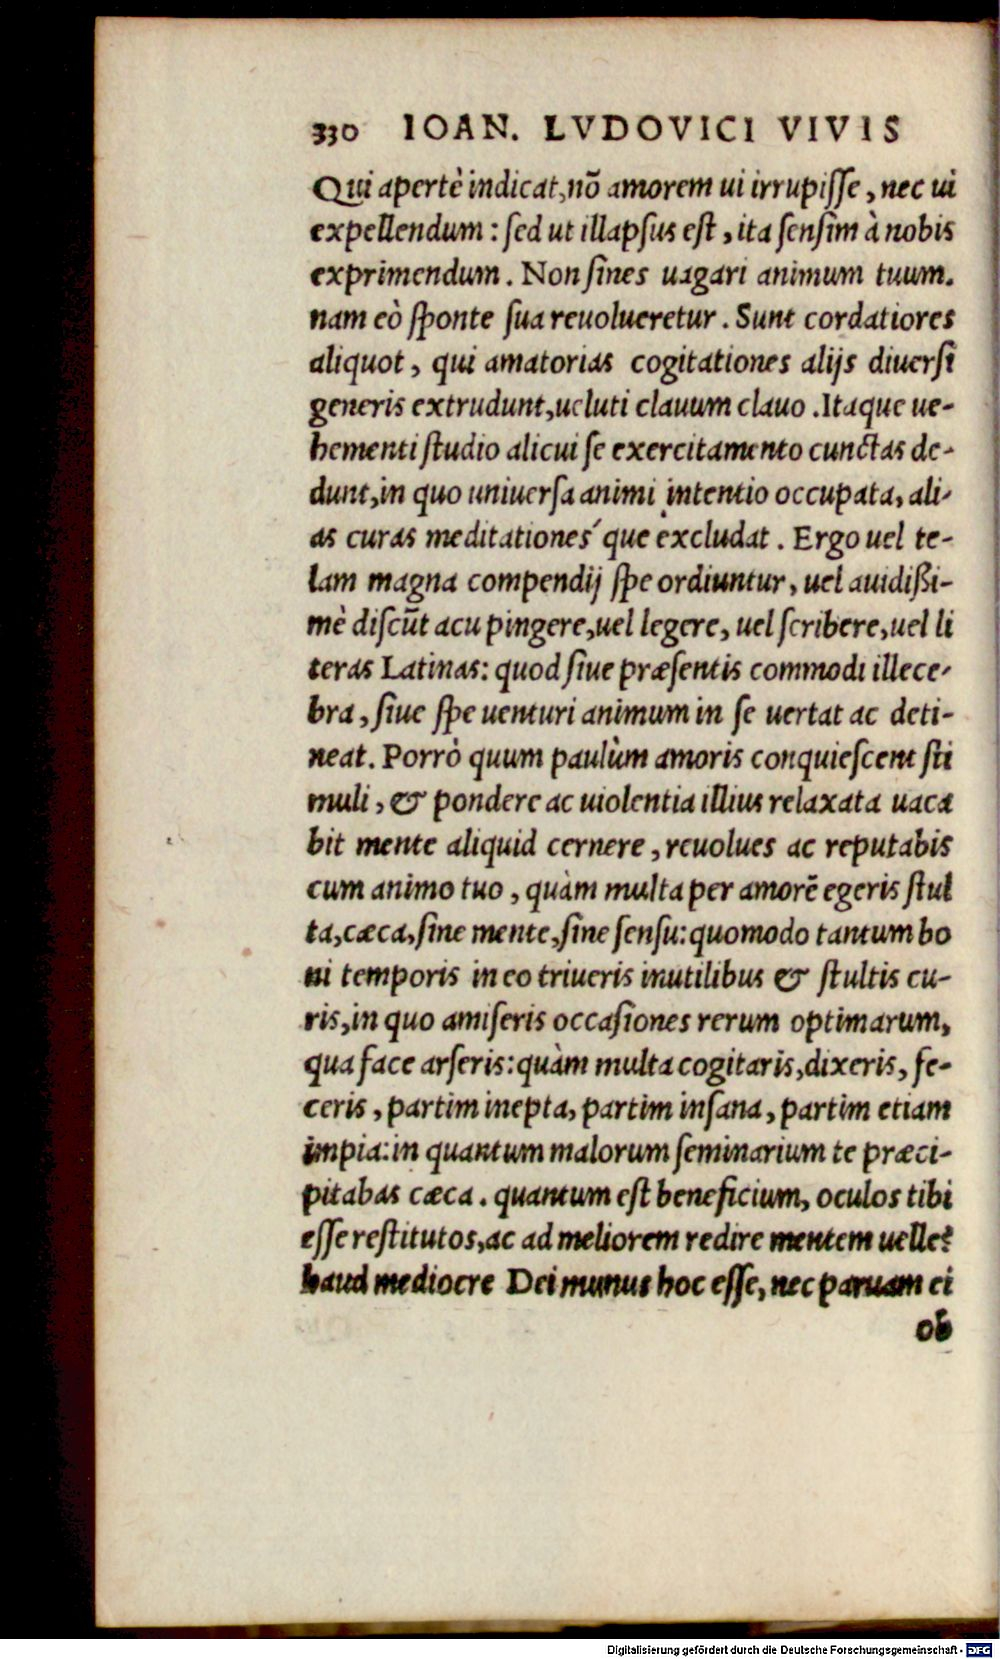 330 IOAN. LVDOVICI VIVIS
Qui apertè indicat, nō amorem ui irrupiſſe, nec ui
expellendum: ſed ut illapſus eſt, ita ſenſim à nobis
exprimendum. Non ſines uagari animum tuum.
nam eò ſponte ſua reuolueretur. Sunt cordatiores
aliquot, qui amatorias cogitationes alijs diuerſi
generis extrudunt, ueluti clauum clauo. Itaque ue-
hementi ſtudio alicui ſe exercitamento cunctas de-
dunt, in quo uniuerſa animi intentio occupata, ali-
as curas meditationes´que excludat. Ergo uel te-
lam magna compendij ſpe ordiuntur, uel auidißi-
mè diſcūt acu pingere, uel legere, uel ſcribere, uel li
teras Latinas: quod ſiue præſentis commodi illece-
bra, ſiue ſpe uenturi animum in ſe uertat ac deti-
neat. Porrò quum paulùm amoris conquieſcent ſti
muli, & pondere ac uiolentia illius relaxata uaca
bit mente aliquid cernere, reuolues ac reputabis
cum animo tuo, quàm multa per amorē egeris ſtul
ta, cæca, ſine mente, ſine ſenſu: quomodo tantum bo
ni temporis in eo triueris inutilibus & ſtultis cu-
ris, in quo amiſeris occaſiones rerum optimarum,
qua face arſeris: quàm multa cogitaris, dixeris, fe-
ceris, partim inepta, partim inſana, partim etiam
impia: in quantum malorum ſeminarium te præci-
pitabas cæca. quantum eſt beneficium, oculos tibi
eſſe reſtitutos, ac ad meliorem redire mentem uelle?
haud mediocre Dei munus hoc eſſe, nec paruam ei
ob
Digitalisierung gefördert durch die Deutsche Forschungsgemeinschaft - DFG